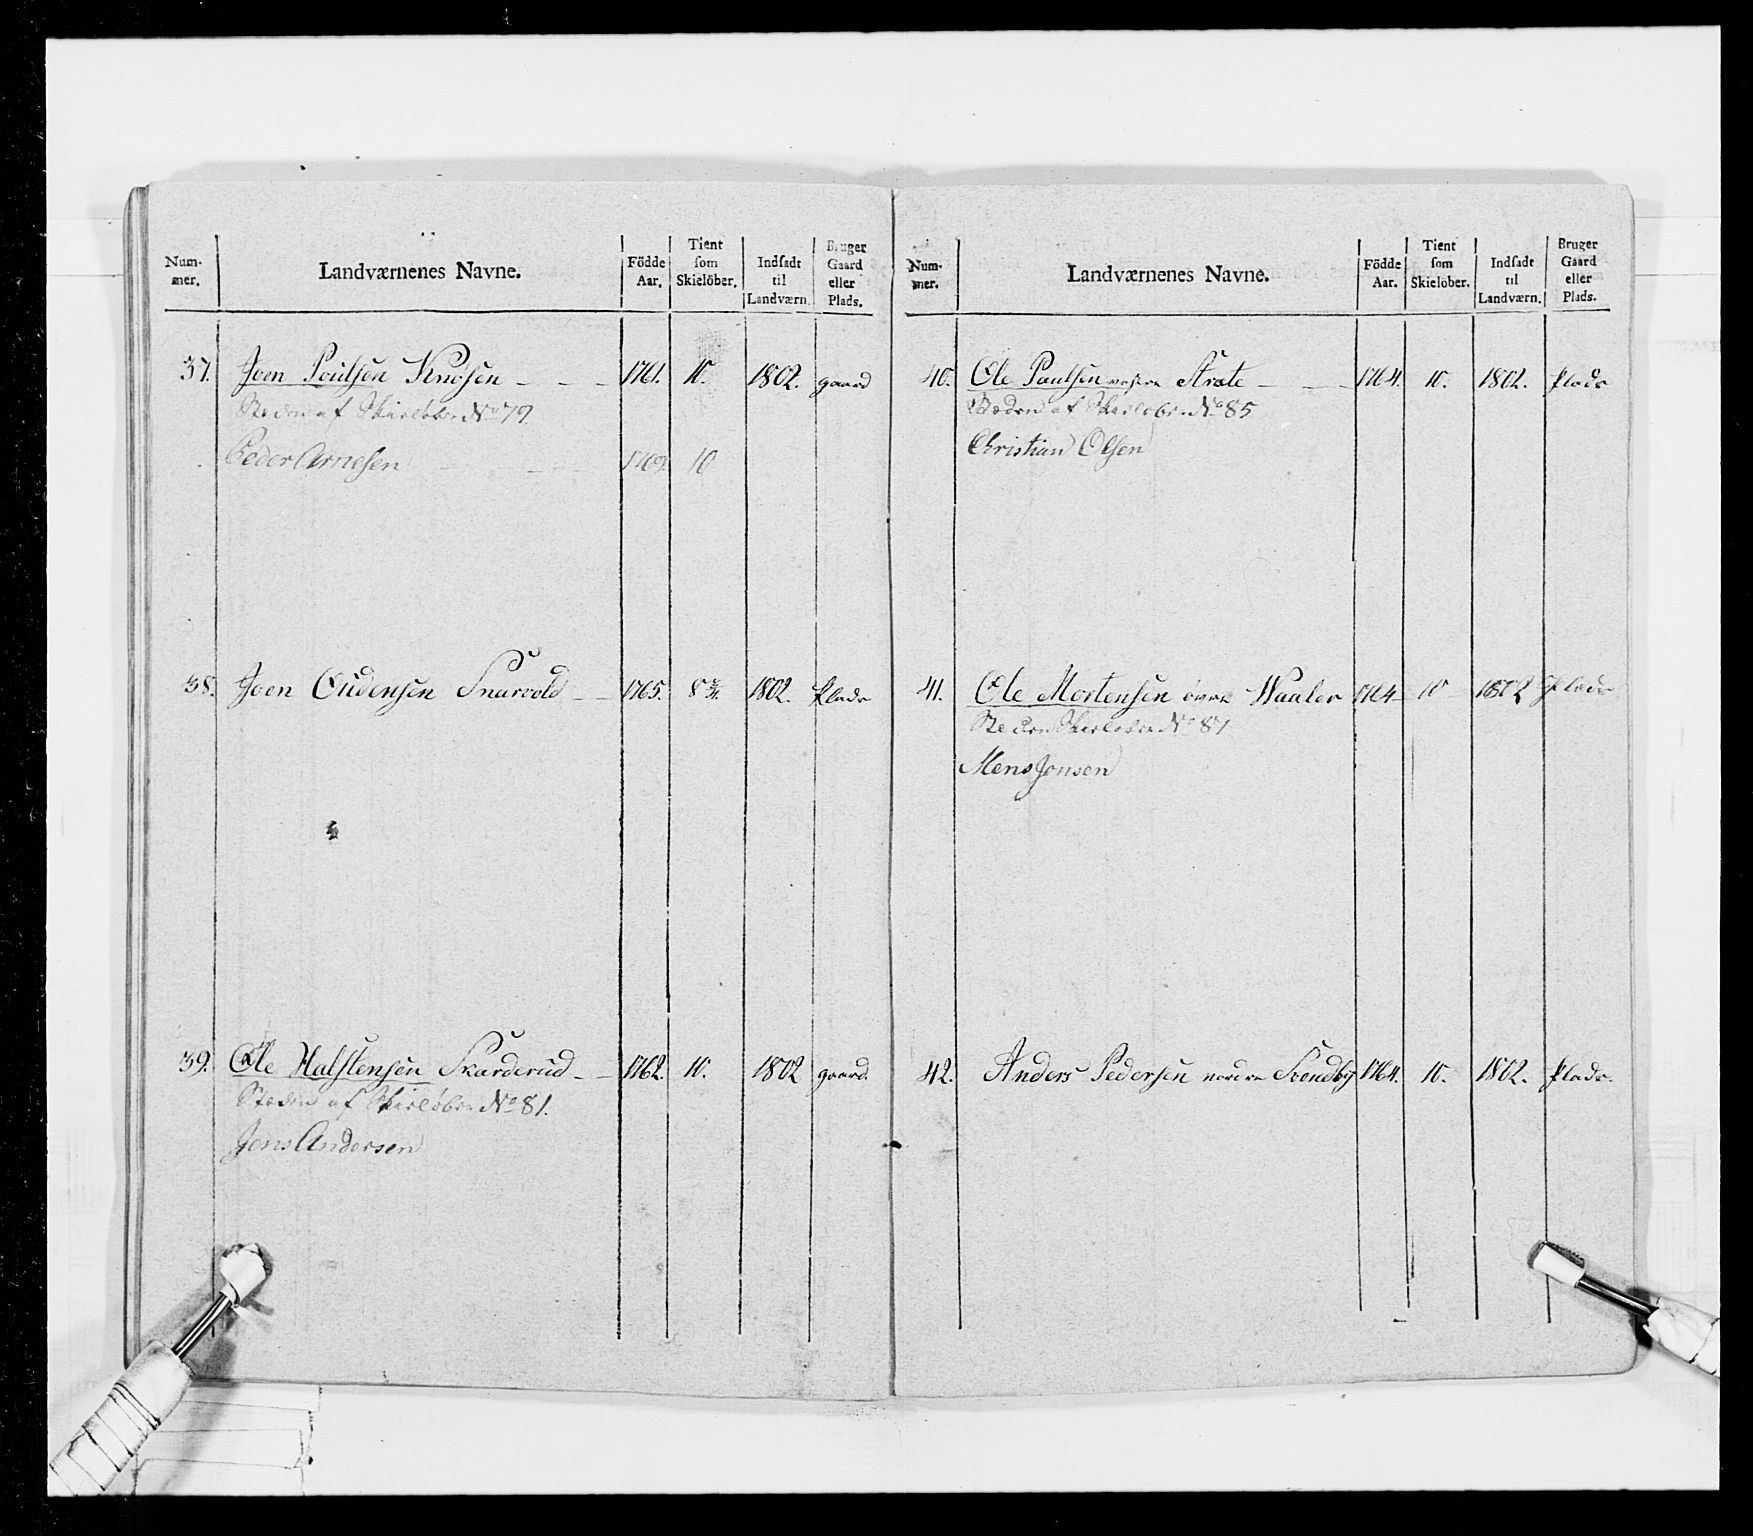 Num-
mer.
Landværnenes Navne.
Födde
Aar.
Tient
som
Skielöber.
Indsadt
til
Landværn.
Bruger
Gaard
eller
Plads.
37. Joen Poulsen Knosen - - - 1761. 10. 1802. gaard
af Skieløber No 79
Peder Arnesen - - - 1769 10
38. Joen Oudensen Snarvold - - 1765. 8 3/4. 1802. Plads
39. Ole Halstensen Skarderud - - 1762. 10. 1802 gaard.
af Skieløber No 81.
Jens Andersen
Num-
mer.
Landværnenes Navne.
Födde
Aar.
Tient
som
Skielöber.
Indsadt
til
Landværn.
Bruger
Gaard
eller
Plads.
40. Ole Paulsen - - - 1764. 10. 1802. Plads
af Skieløber No 85
Christian Olsen
41. Ole Mortensen øvre Waaler 1764 10 1802 Plads
Skieløber No 87
Mens Jonsen
42. Anders Pedersen nordre Svendby 1764. 10. 1802. Plads.